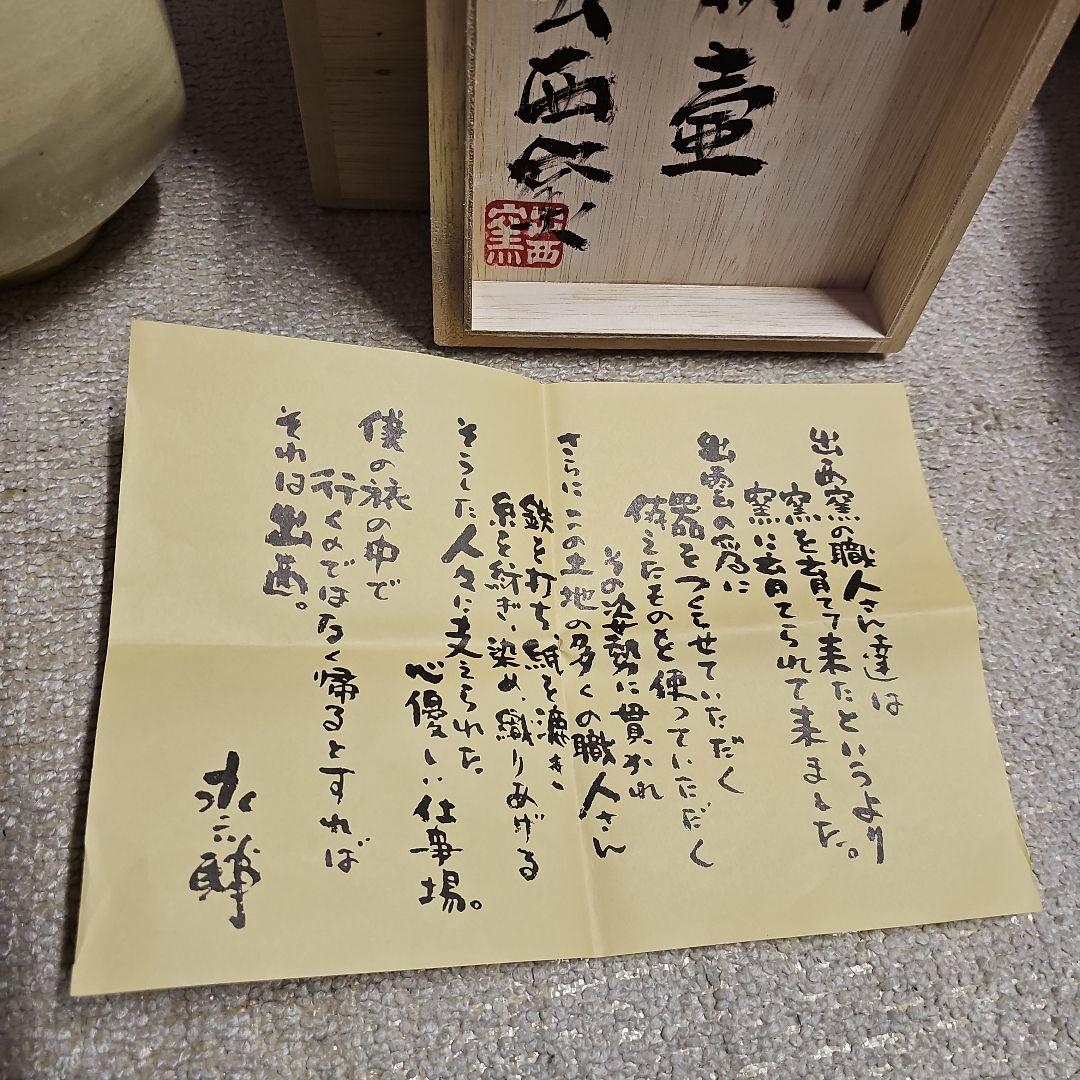 壷
西窯
出西窯
出西窯の職人さん達は
窯を育てて来たというより
窯に育てられて来ました。
出雲の為に
器をつくらせていただく
備えたものを使っていただく
その姿勢に貫かれ
さらにこの土地の多くの職人さん
鉄を打ち、紙を漉き、
糸を紡ぎ、染め、織りあげる
そうした人々に支えられた
心優しい仕事場。
僕の旅の中で
行くのではなく帰るとすれば
それは出西。
永六輔